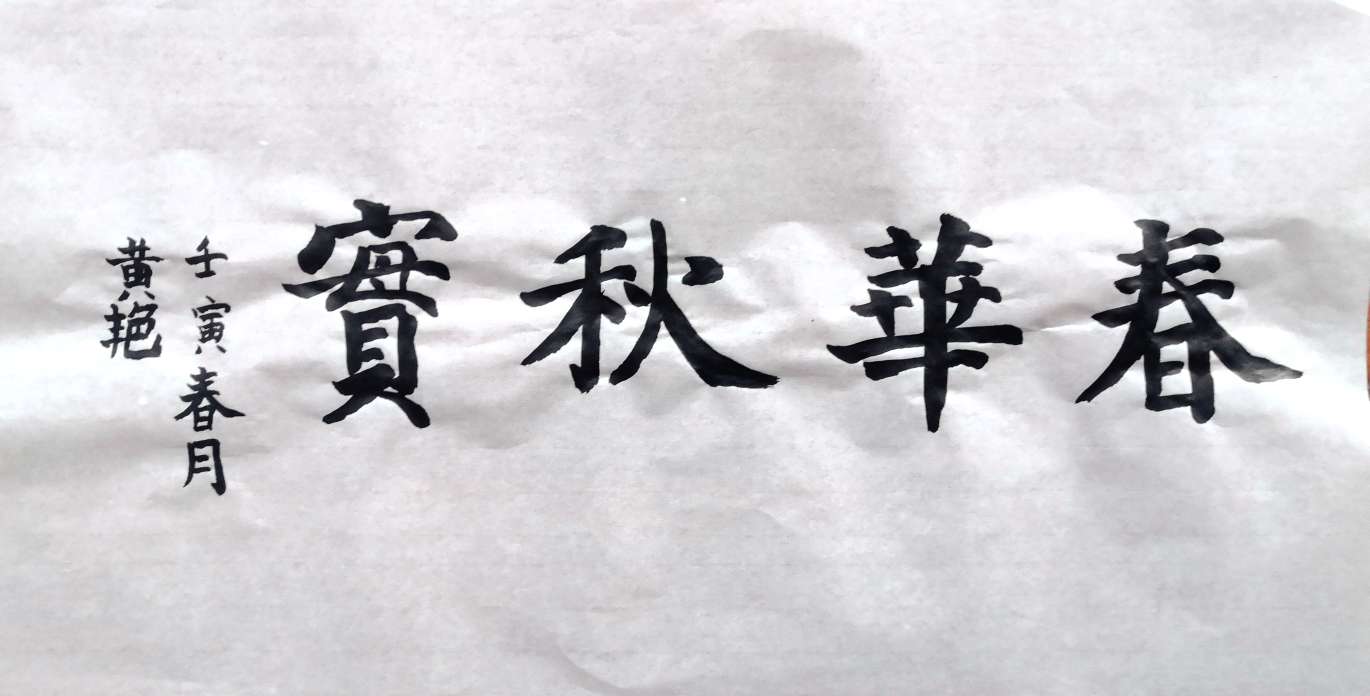 春華秋實
壬寅春月
黄艳